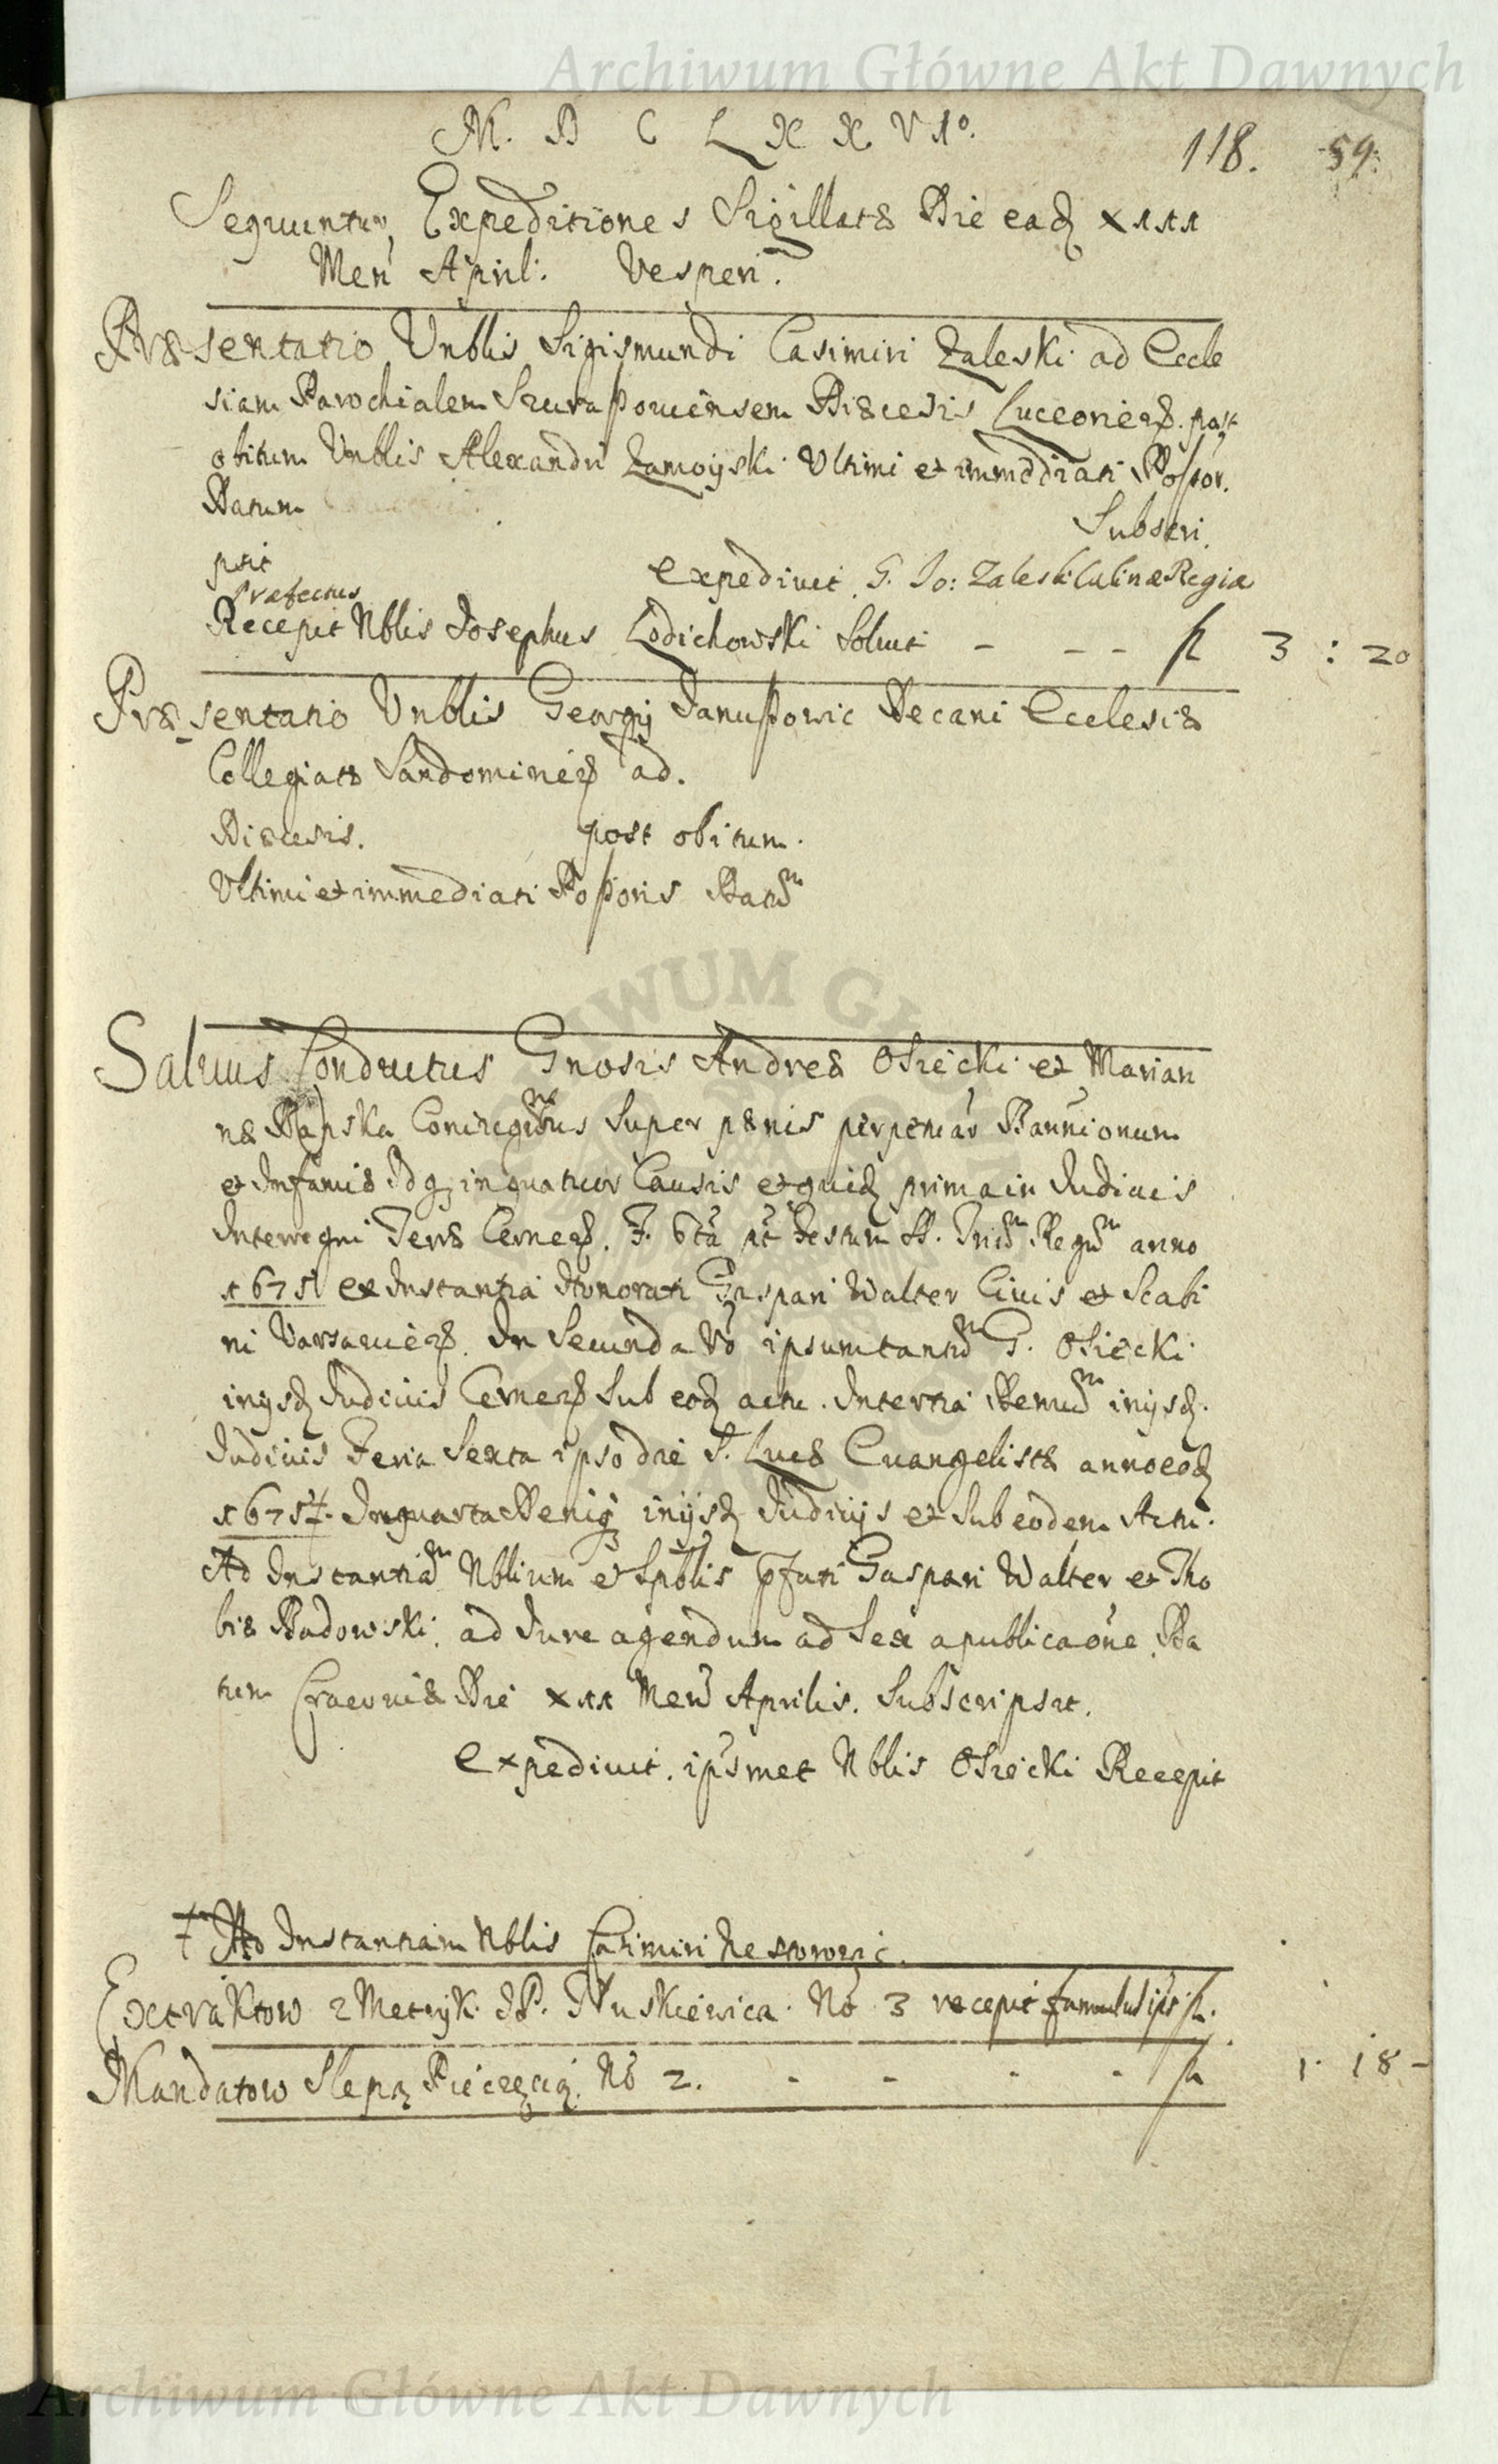 Archiwum Główne Akt Dawnych
M. D C L X X V 1º.
118. 59.
Sequuntur Expeditiones Sigillatæ Die eadē x111
Men̄ April: Vesperi.
Præsentatio Vnblis Sigismundi Casimiri Zaleski ad Eccle
siam Parochialem Diæcesis Luceorien̄. post
obitum Vnblis Alexandri Zamoyski Vltimi et immēdiati Poſsor.
Datum
Subscri
psit
Expediuit G. Jo: Zaleski Culinæ Regiæ
Præfectus
Recepit Nblis Josephus Lodichowski Soluit - - - fl 3 : 20
Præsentatio Vnblis Georgij Januſsowic Decani Ecclesiæ
Collegiatæ Sandomirien̄ ad.
Diæcesis. post obitum.
Vltimi et immediati Poſsoris Datum
Saluus Conductus Gnosis Andreæ Osiecki et Marian
næ Coniugibus Super pænis perpetuæ Bannionum
et Infamiæ Idq; in quatuor Causis et quidē prima in Judiciis
Interregni Terræ Cernen̄. F. 6tā pt̄ Festum SS. Triū Regū anno
1675 ex Instantia Honorati Gaspari Walter Ciuis et Scabi
ni Varsauien̄. In Secunda Vō ipsum tantū G. Osiecki
in ijsdē Judiciis Cernen̄ Sub eodē actu. In tertia Demū in ijsdē.
Judiciis Feria Sexta ipso die S. Lucæ Euangelistæ anno eodē
1675 ƚ. In quarta Deniq; in ijsdē Judicijs et Sub eodem Actu.
Ad Instantiā Nblium et Spblis p̄fati Gaspari Walter et Tho
biæ Badowski ad Jure agendum ad Sex a publicaōne Da
tum Cracouiæ Die x11 Men̄ Aprilis. Subscripsit.
Expediuit. ipsmet Nblis Osiecki Recepit
ƚ Ad Instantiam Nblis Casimiri
Extraktow z Metryk. JP. No 3 recepit famulus ips fl.
Mandatow Slepą Pieczęcią. No 2. - - - - fl 1. 18 -
Archiwum Główne Akt Dawnych